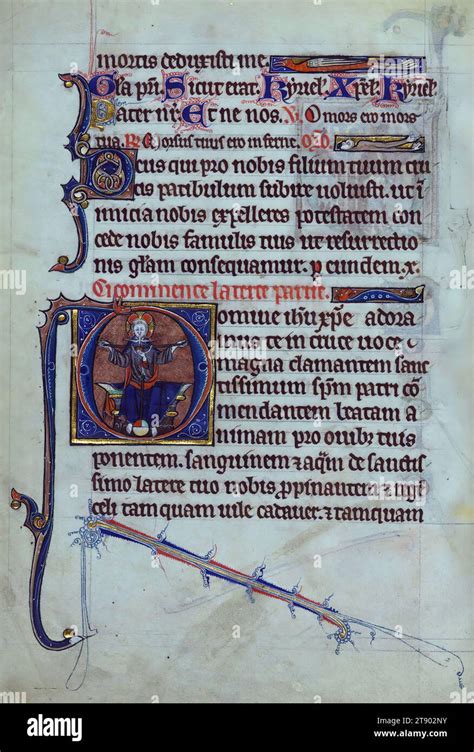 mortis deduxisti me.
Gla pri. Sicut erat. Kyriel. Xpel. Kyriel.
Pater nr. Et ne nos. V. O mors ero mors
tua. R. Morsus tuus ero inferne. Oro.
Deus qui pro nobis filium tuum cru
cis patibulum subire voluisti. ut i
nimicia nobis expelleres potestatem con
cede nobis famulis tuis ut resurrectio
nis glam consequamur. p eundem. x.
Ci commence la terce partie.
Domine ihu xpe adora
mus te in cruce voce
magna clamantem sanc
tissimum spm patri com
mendantem beatam a
nimam pro ovib tuis
ponentem. sanguinem et aqm de sanctis
simo latere tuo nobis propinantem. angi
celi tamquam uile cadauer. et tamquam
alamy
Image ID: 2T902NY
www.alamy.com